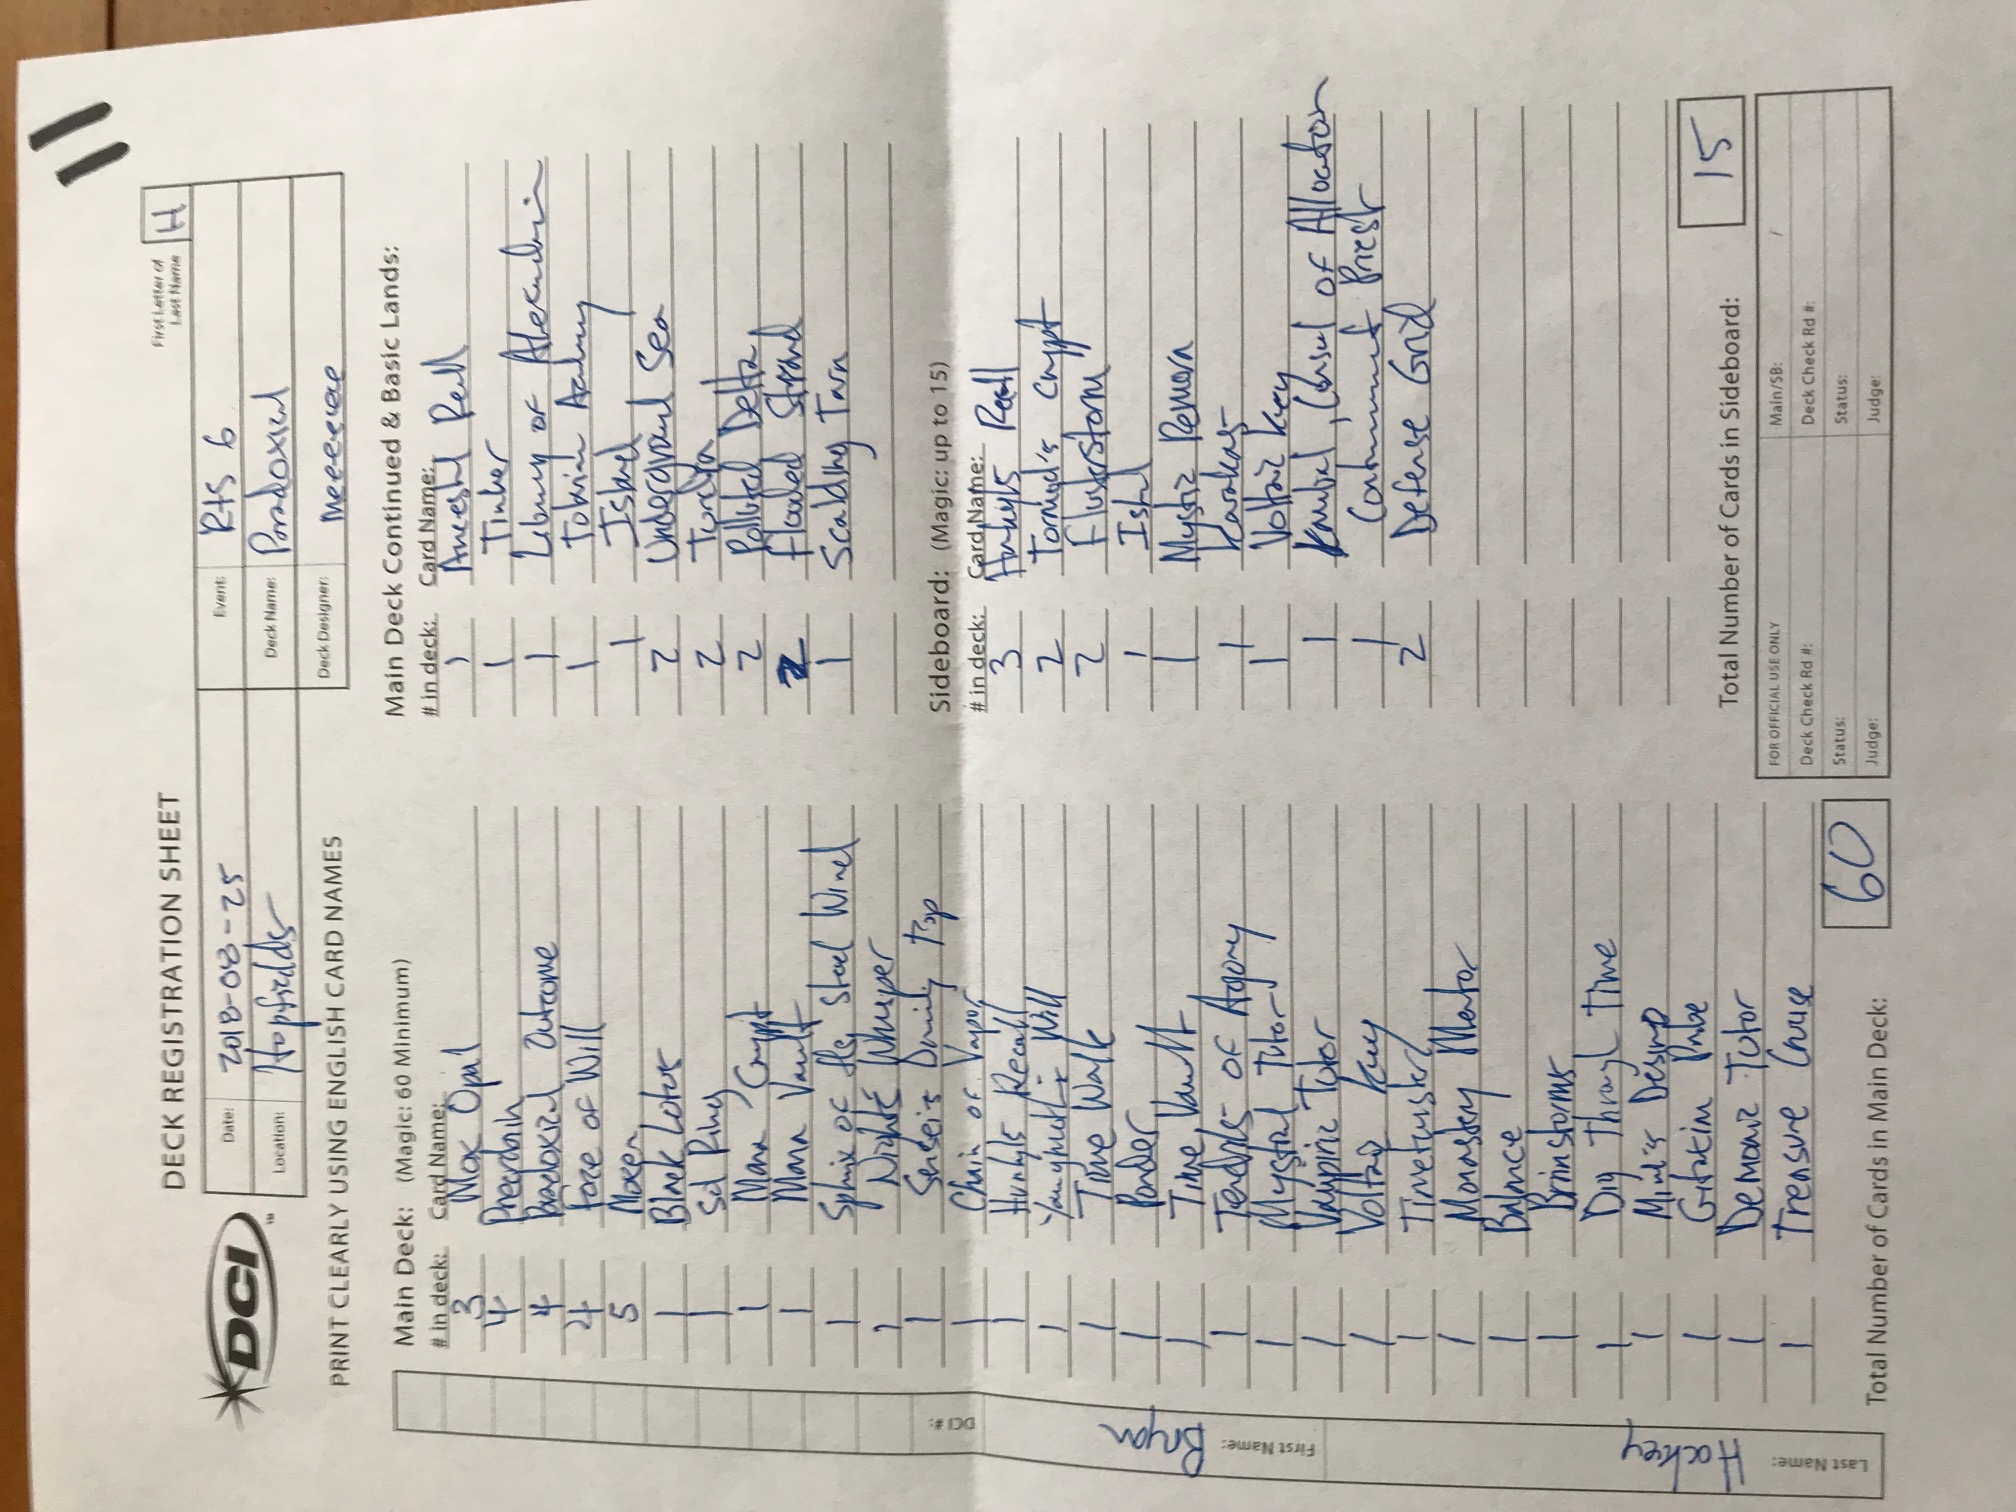 11
DECK REGISTRATION SHEET
First Letter of
Last Name
H
DCI
Date: 2018-08-25
Event: RtS 6
Location: Hopfields
Deck Name: Paradoxical
Deck Designer: Meeeeeee
PRINT CLEARLY USING ENGLISH CARD NAMES
Main Deck: (Magic: 60 Minimum)
# in deck: Card Name:
3 Mox Opal
4 Preordain
4 Paradoxical Outcome
4 Force of Will
5 Moxen
1 Black Lotus
1 Sol Ring
1 Mana Crypt
1 Mana Vault
1 Sphinx of the Steel Wind
1 Night's Whisper
1 Sensei's Divining Top
1 Chain of Vapor
1 Hurkyl's Recall
1 Yawgmoth's Will
1 Time Walk
1 Ponder
1 Time Vault
1 Tendrils of Agony
1 Mystical Tutor
1 Vampiric Tutor
1 Voltaic Key
1 Timetwister
1 Monastery Mentor
1 Balance
1 Brainstorm
1 Dig Through Time
1 Mind's Desire
1 Gitaxian Probe
1 Demonic Tutor
1 Treasure Cruise
Total Number of Cards in Main Deck: 60
Main Deck Continued & Basic Lands:
# in deck: Card Name:
1 Ancestral Recall
1 Tinker
1 Library of Alexandria
1 Tolarian Academy
1 Island
2 Underground Sea
2 Tundra
2 Polluted Delta
2 Flooded Strand
1 Scalding Tarn
Sideboard: (Magic: up to 15)
# in deck: Card Name:
3 Hurkyl's Recall
2 Tormod's Crypt
2 Flusterstorm
1 Island
1 Mystic Remora
1 Karakas
1 Voltaic Key
1 Kambal, Consul of Allocation
1 Containment Priest
2 Defense Grid
Total Number of Cards in Sideboard: 15
FOR OFFICIAL USE ONLY
Main/SB: /
Deck Check Rd #:
Deck Check Rd #:
Status:
Status:
Judge:
Judge:
DCI #:
First Name: Bryan
Last Name: Hockey